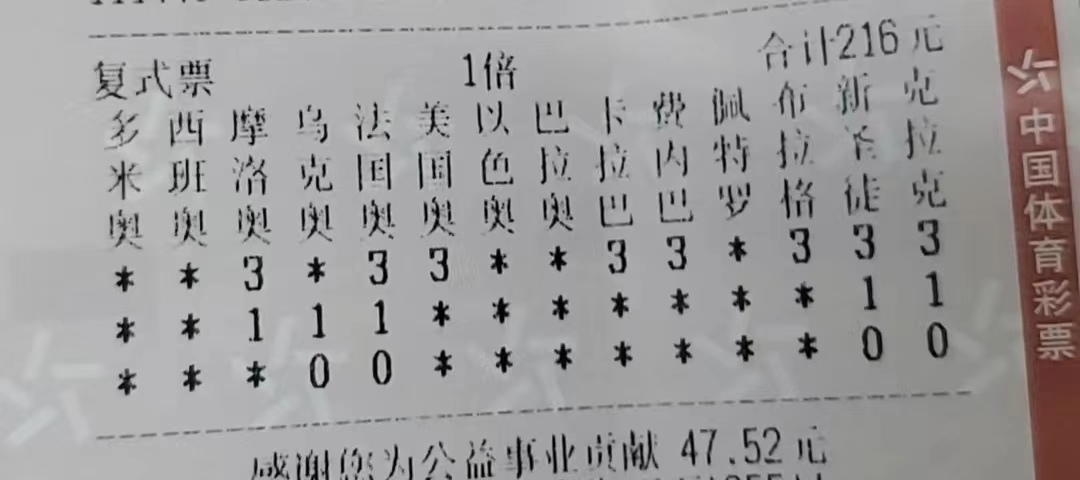 复式票 1倍 合计216元
多 西 摩 乌 法 美 以 巴 卡 费 佩 布 新 克
米 班 洛 克 国 国 色 拉 拉 内 特 拉 圣 拉
奥 奥 奥 奥 奥 奥 奥 奥 巴 巴 罗 格 徒 克
* * 3 * 3 3 * * 3 3 * 3 3 3
* * 1 1 1 * * * * * * * 1 1
* * * 0 0 * * * * * * * 0 0
感谢您为公益事业贡献 47.52元
中国体育彩票